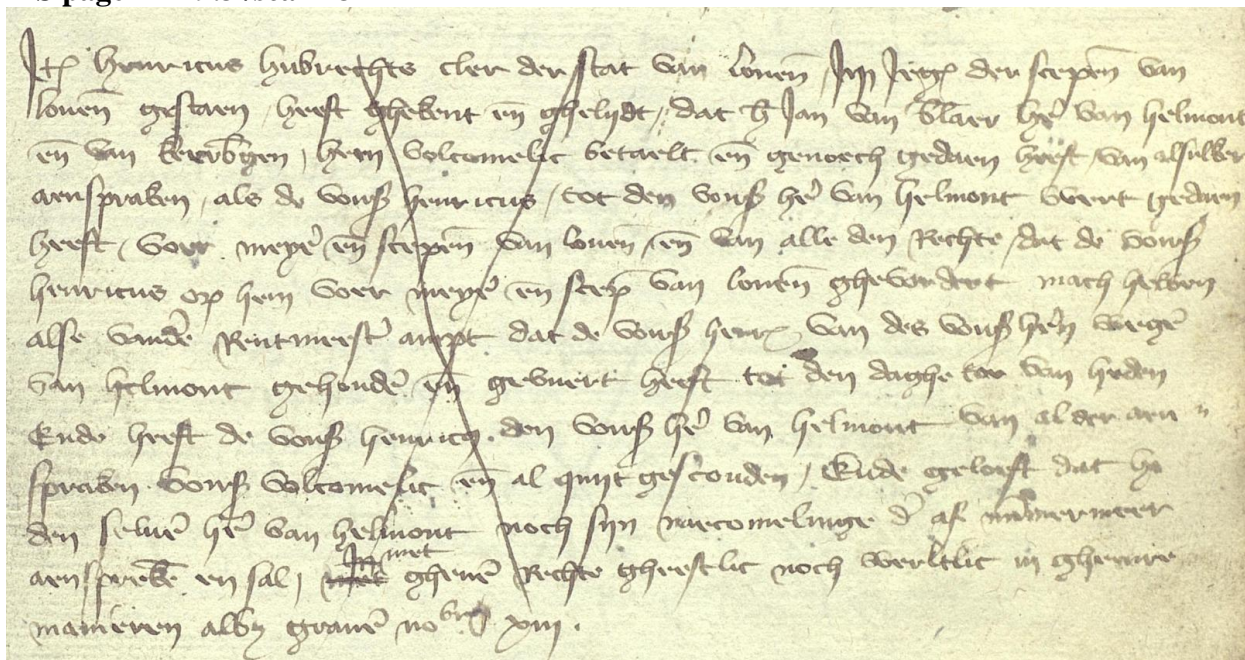 Jt(em) henricus hubrechts cler der stat van louen̄ Jn jeg(en) der scepen̄ van
louen̄ gestaen / heeft ghekent en̄ ghelijdt / dat h̄ Jan van blaer he' van helmont
en̄ van keerb'gen / hem volcomelic betaelt en̄ genoech gedaen heeft / van alsulker
aenspraken / als de vors henricus / tot den vors he' van helmont wert gedaen
heeft / voer meye' en̄ scepen̄ van louen̄ / en̄ van alle den Rechte / dat de vors
henricus op hem voer meye' en̄ scep van louen̄ ghevordert mach hebben
alse vand' Rentmeest' ampt dat de vors henr van des vors he'n wege'
van helmont gehoude' en̄ gevuert heeft tot den daghe toe van heden
Ende heeft de vors henric(us) den vors he' van helmont van al der aen
spraken vors volcomelic en̄ al quijt gescouden / Ende geloeft dat hi
den selue' he' van helmont noch sijn naecomelinge d' af nu(m)mermeer
aenspreke' en sal / Jn met ghene' Rechte gheestlic noch werltlic in gheenre
manieren alby graue' no(vem)br(is) xiii .